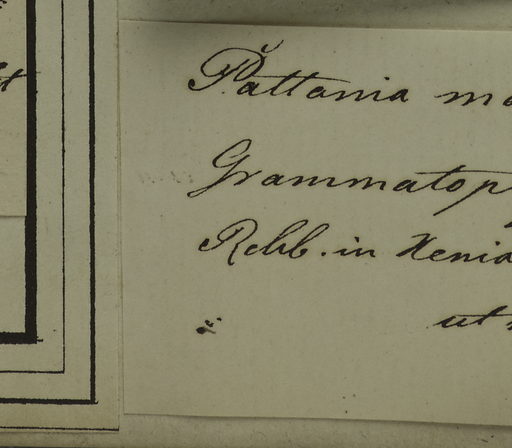 Pattania
Grammatop
Rchb. in Xenia
ut